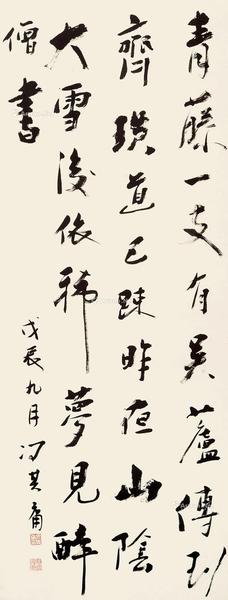 青藤一支有吴蘆傳到
齊璜道已疎昨夜山陰
大雪後依稀夢見醉
僧書
戊辰九月冯其庸